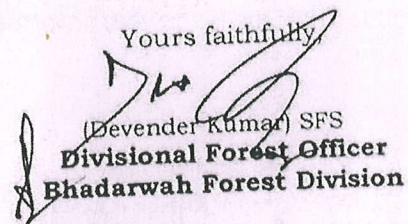 Yours faithfully,
(Devender Kumar) SFS
Divisional Forest Officer
Bhadarwah Forest Division